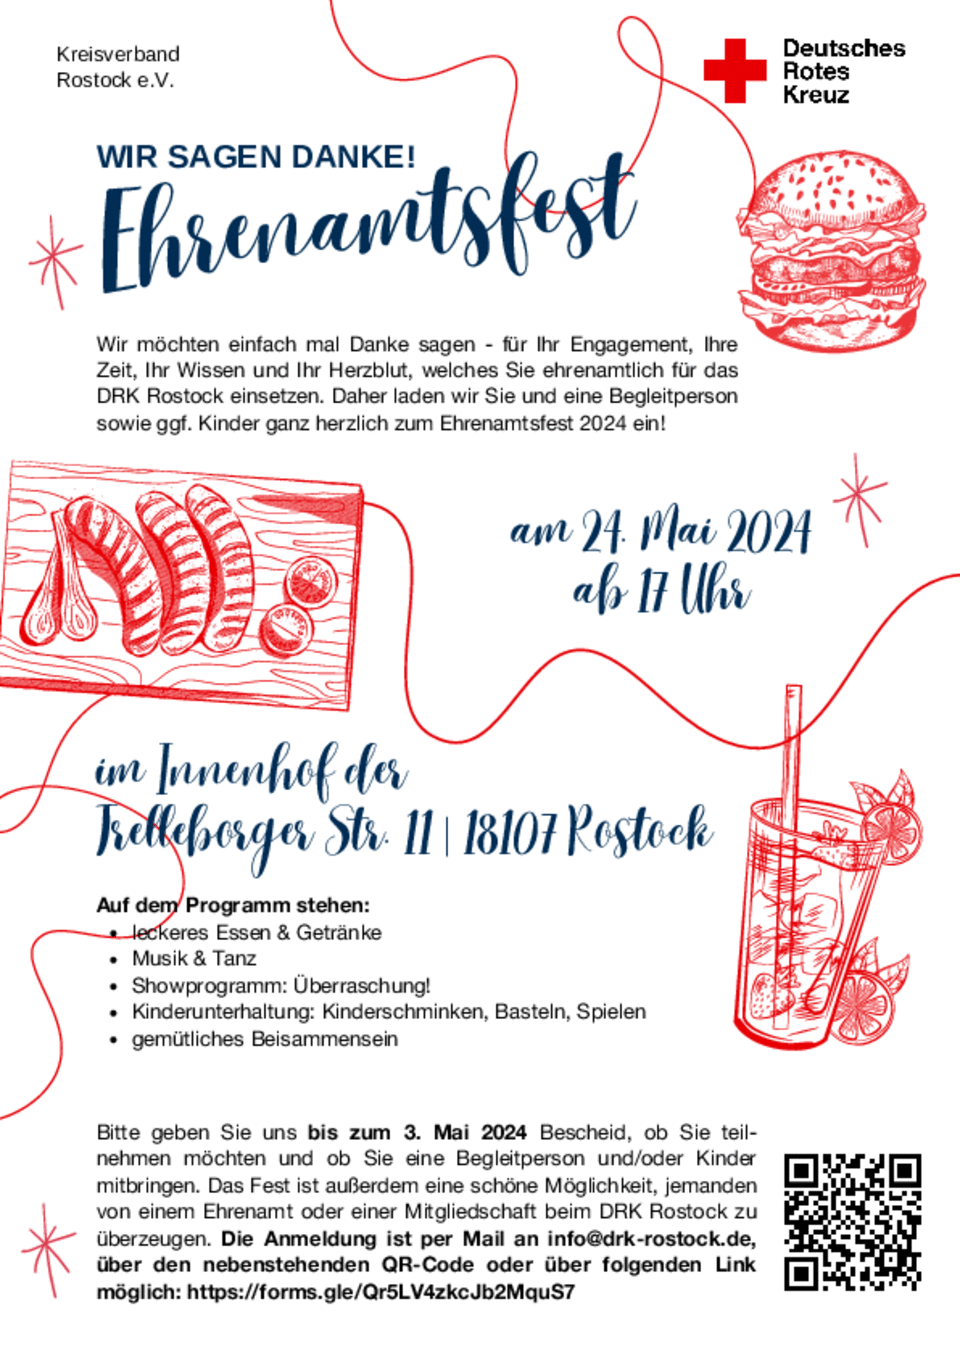 Kreisverband
Rostock e.V.
Deutsches
Rotes
Kreuz
WIR SAGEN DANKE!
Ehrenamtsfest
Wir möchten einfach mal Danke sagen - für Ihr Engagement, Ihre
Zeit, Ihr Wissen und Ihr Herzblut, welches Sie ehrenamtlich für das
DRK Rostock einsetzen. Daher laden wir Sie und eine Begleitperson
sowie ggf. Kinder ganz herzlich zum Ehrenamtsfest 2024 ein!
am 24. Mai 2024
ab 17 Uhr
im Innenhof der
Trelleborger Str. 11 | 18107 Rostock
Auf dem Programm stehen:
• leckeres Essen & Getränke
• Musik & Tanz
• Showprogramm: Überraschung!
• Kinderunterhaltung: Kinderschminken, Basteln, Spielen
• gemütliches Beisammensein
Bitte geben Sie uns bis zum 3. Mai 2024 Bescheid, ob Sie teil-
nehmen möchten und ob Sie eine Begleitperson und/oder Kinder
mitbringen. Das Fest ist außerdem eine schöne Möglichkeit, jemanden
von einem Ehrenamt oder einer Mitgliedschaft beim DRK Rostock zu
überzeugen. Die Anmeldung ist per Mail an info@drk-rostock.de,
über den nebenstehenden QR-Code oder über folgenden Link
möglich: https://forms.gle/Qr5LV4zkcJb2MquS7